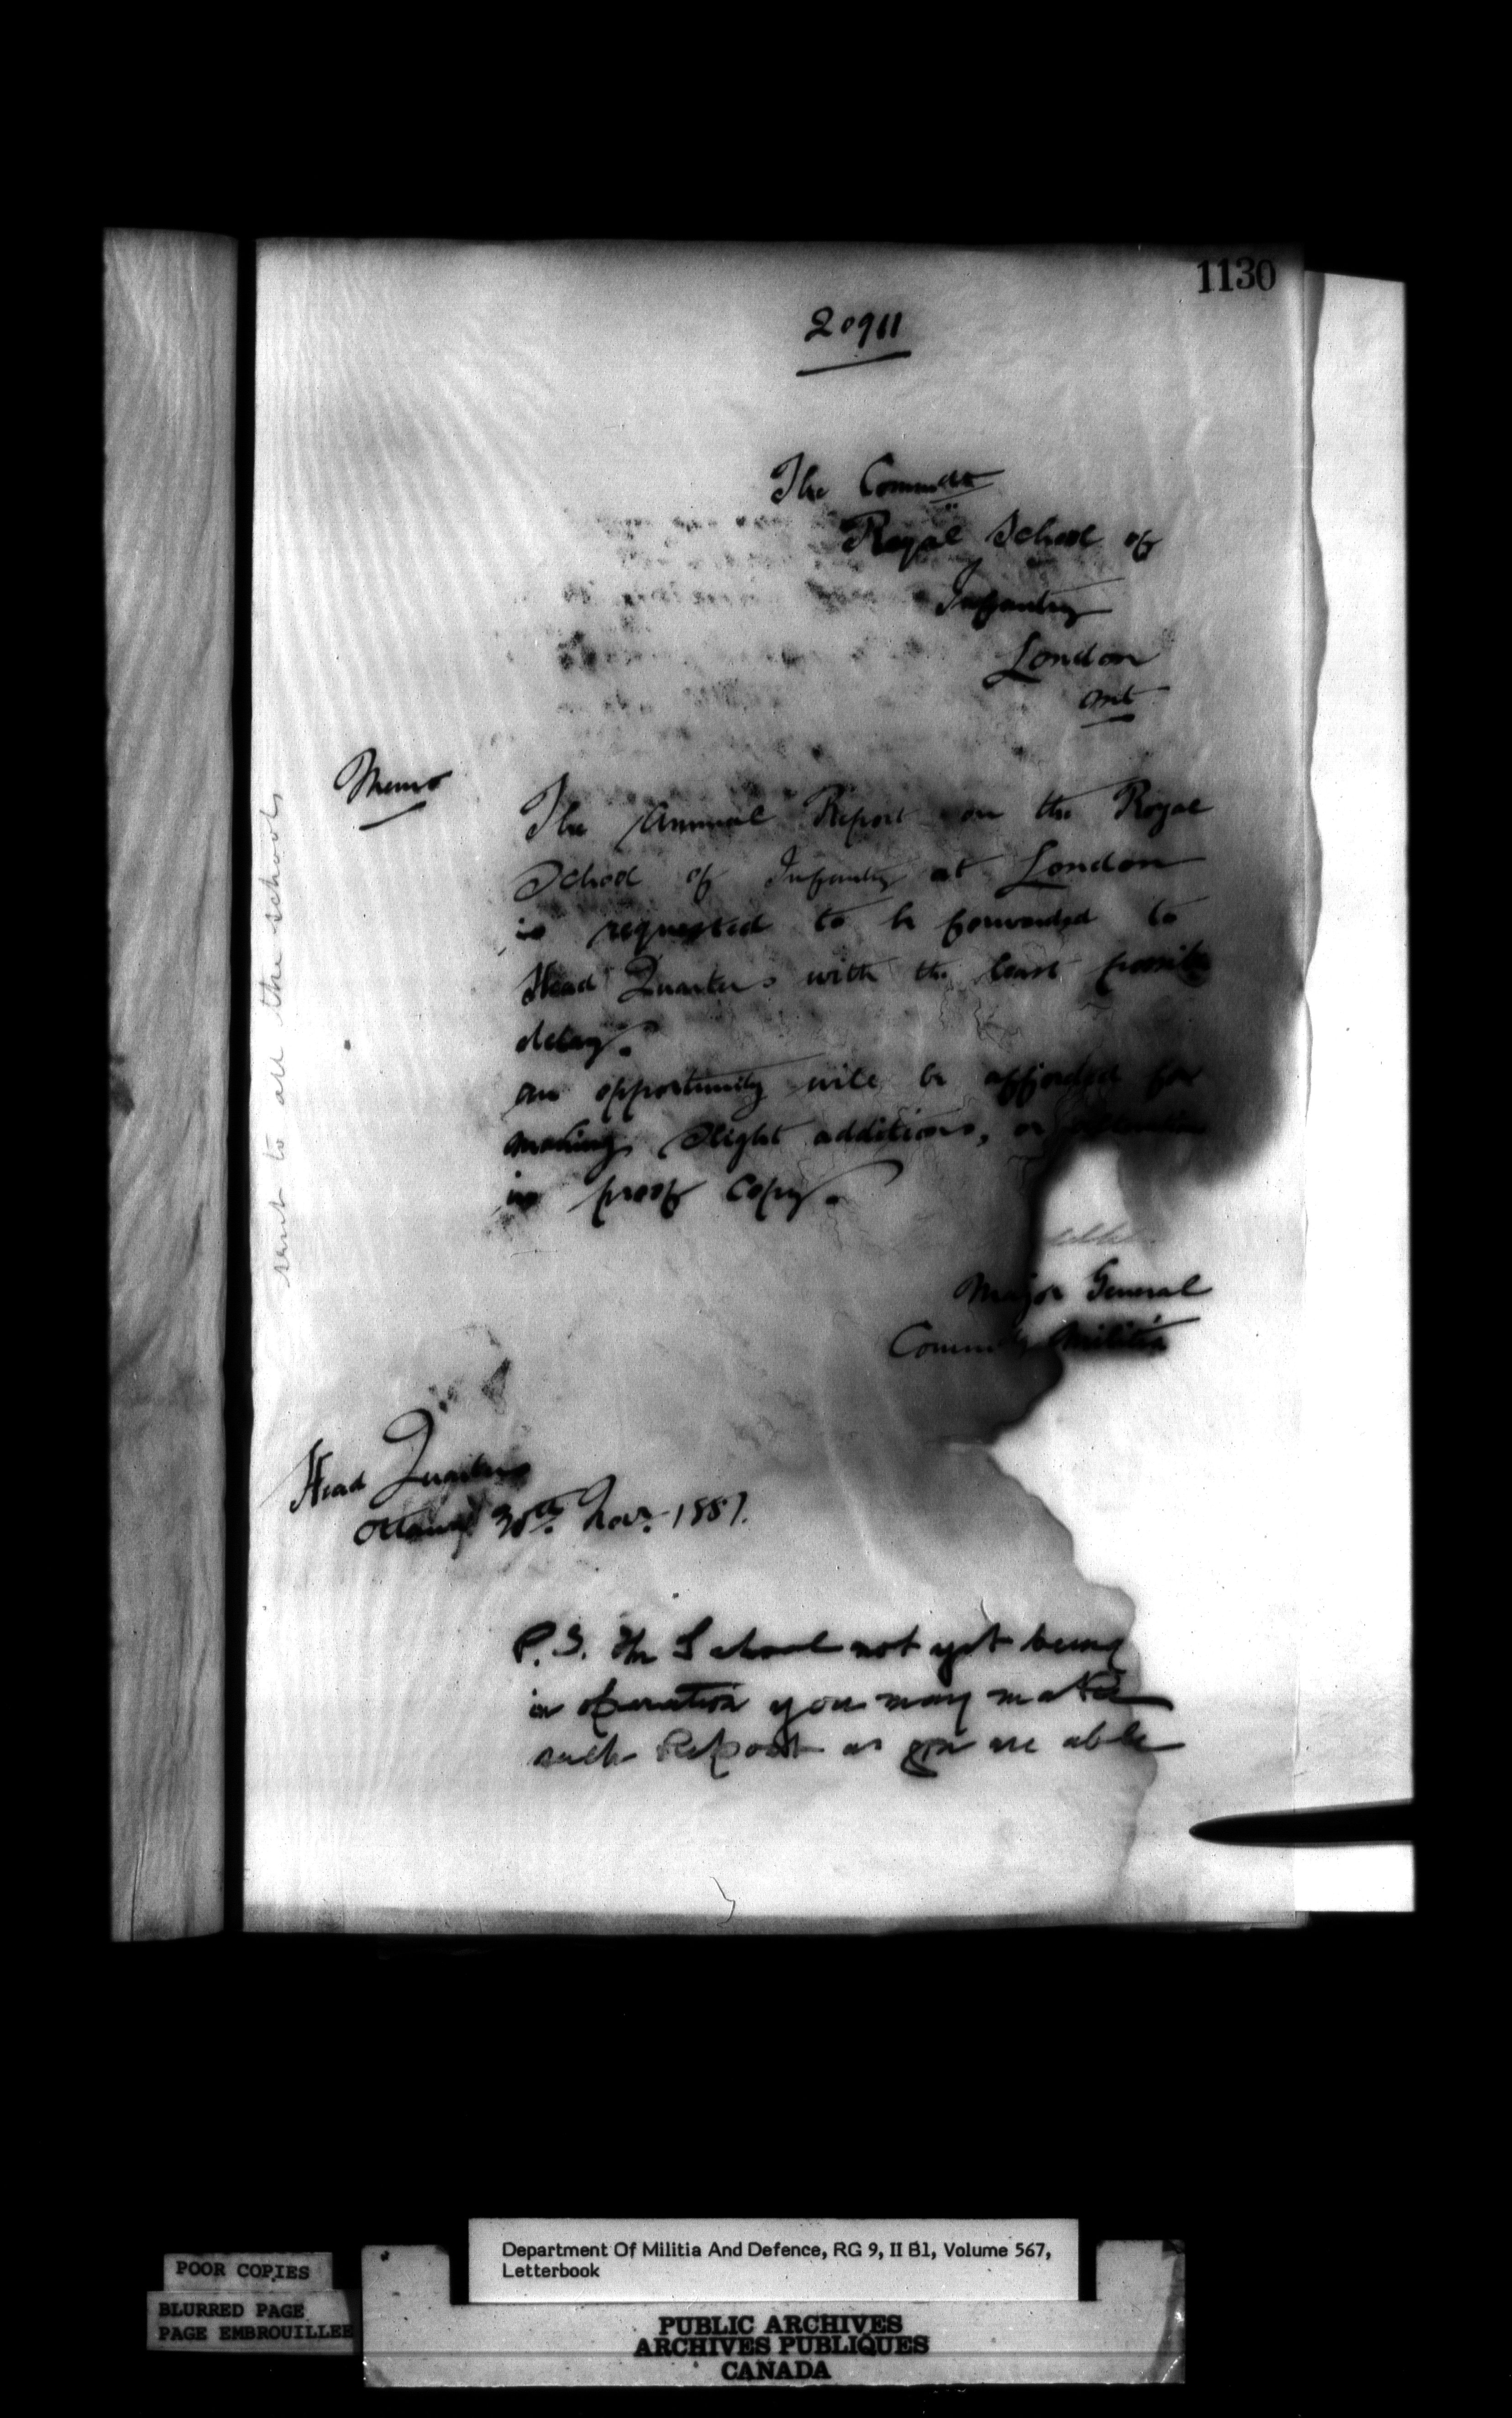 1130
20911
The Commdt
Royal School of
Infantry
London
Ont
Memo
The Annual Report on the Royal
School of Infantry at London
is requested to be forwarded to
Head Quarters with the least possible
delay.
An opportunity will be afforded for
making slight additions, or
in proof copy.
Major General
Commdg Militia
Head Quarters
Ottawa 30th Nov. 1887.
P.S. The School not yet being
in operation you may make
such Report as you are able
sent to all the schools
Department Of Militia And Defence, RG 9, II B1, Volume 567,
Letterbook
POOR COPIES
BLURRED PAGE
PAGE EMBROUILLEE
PUBLIC ARCHIVES
ARCHIVES PUBLIQUES
CANADA